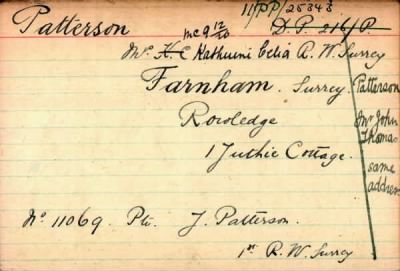 Patterson
11/PP/25343
mc 9 12/20
D.P. 216/P.
Mrs H.C Kathurini Celia R.W. Surrey
Farnham. Surrey.
Rowledge
1 Juthie Cottage.
Patterson
Mr John
Thomas
same
address
No 11069 Pte. J. Patterson.
1st R.W. Surrey